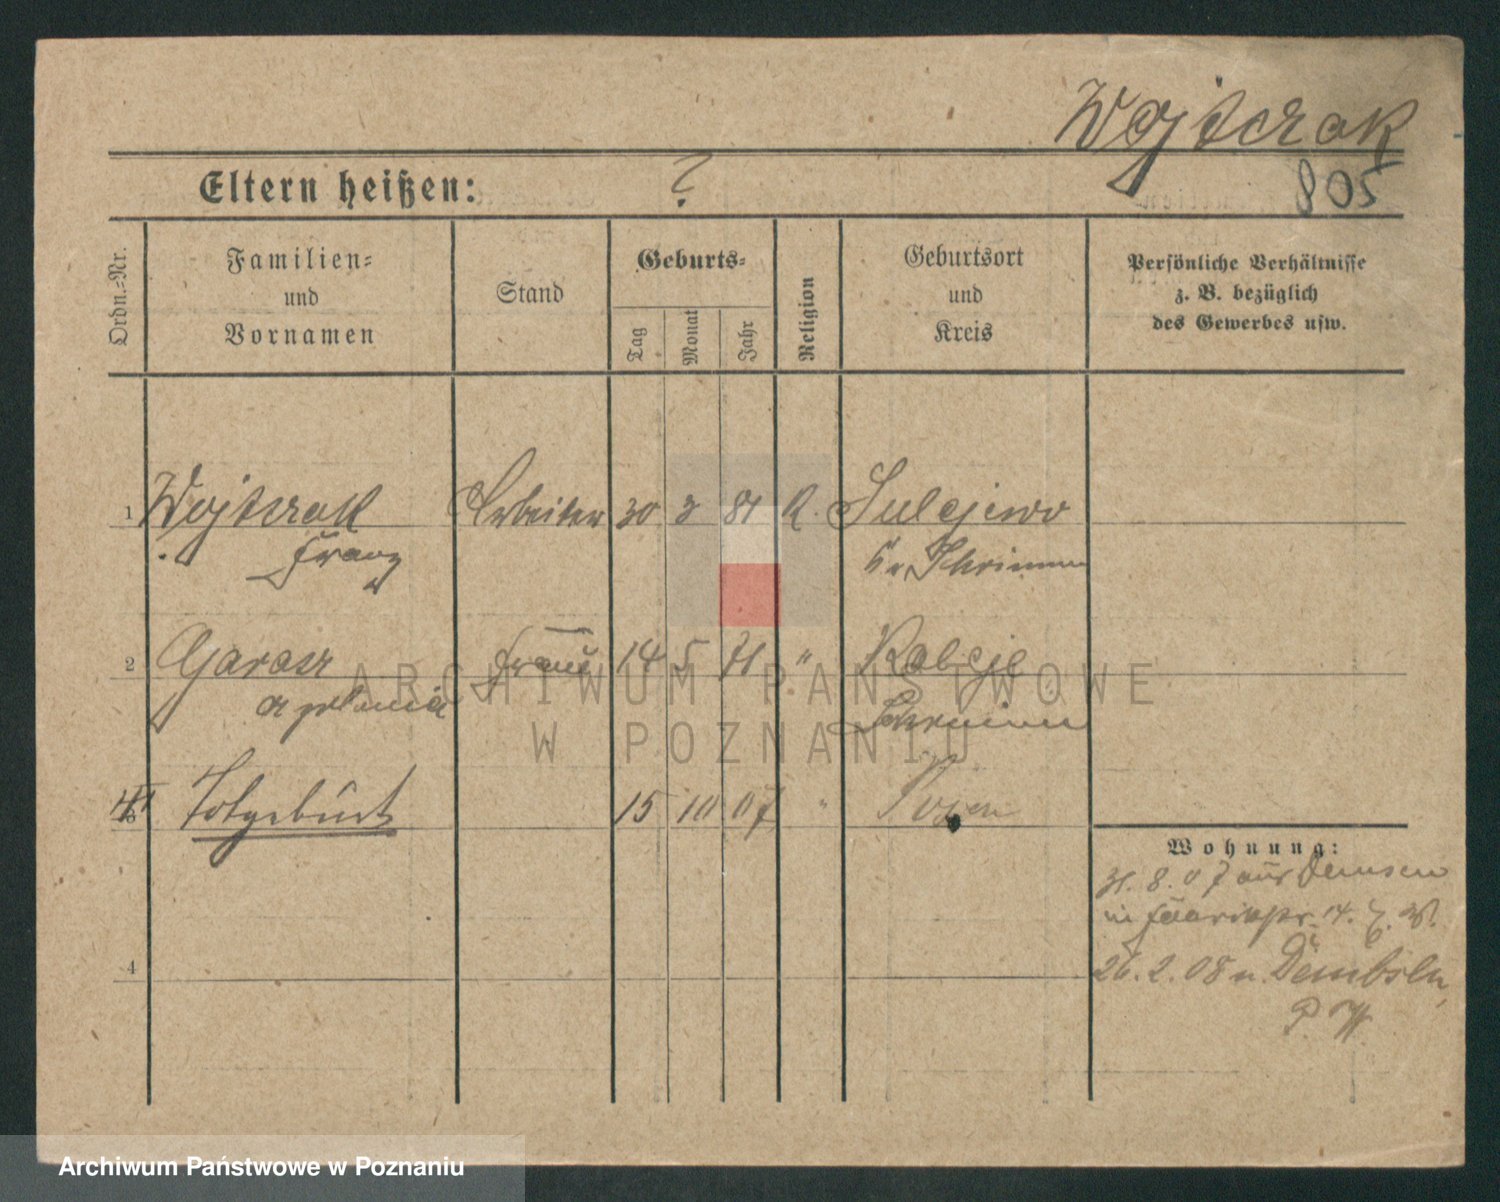 Wojtczak
805
Eltern heißen: ?
Ordn.-Nr.
Familien-
und
Vornamen
Stand
Geburts-
Tag
Monat
Jahr
Religion
Geburtsort
und
Kreis
Persönliche Verhältnisse
z. B. bezüglich
des Gewerbes usw.
1 Wojtczak Arbeiter 30 3 81 K. Sulejewo
Franz Kr Schrimm
2 Garasz Frau 14 5 " Koleje
Apolonia Schrimm
Totgeburt 15 10 07 " Posen
Wohnung:
31. 8. 07 aus Demsen
in 14.
4
26. 2. 08 n. Dembsen
ARCHIWUM PAŃSTWOWE
W POZNANIU
Archiwum Państwowe w Poznaniu